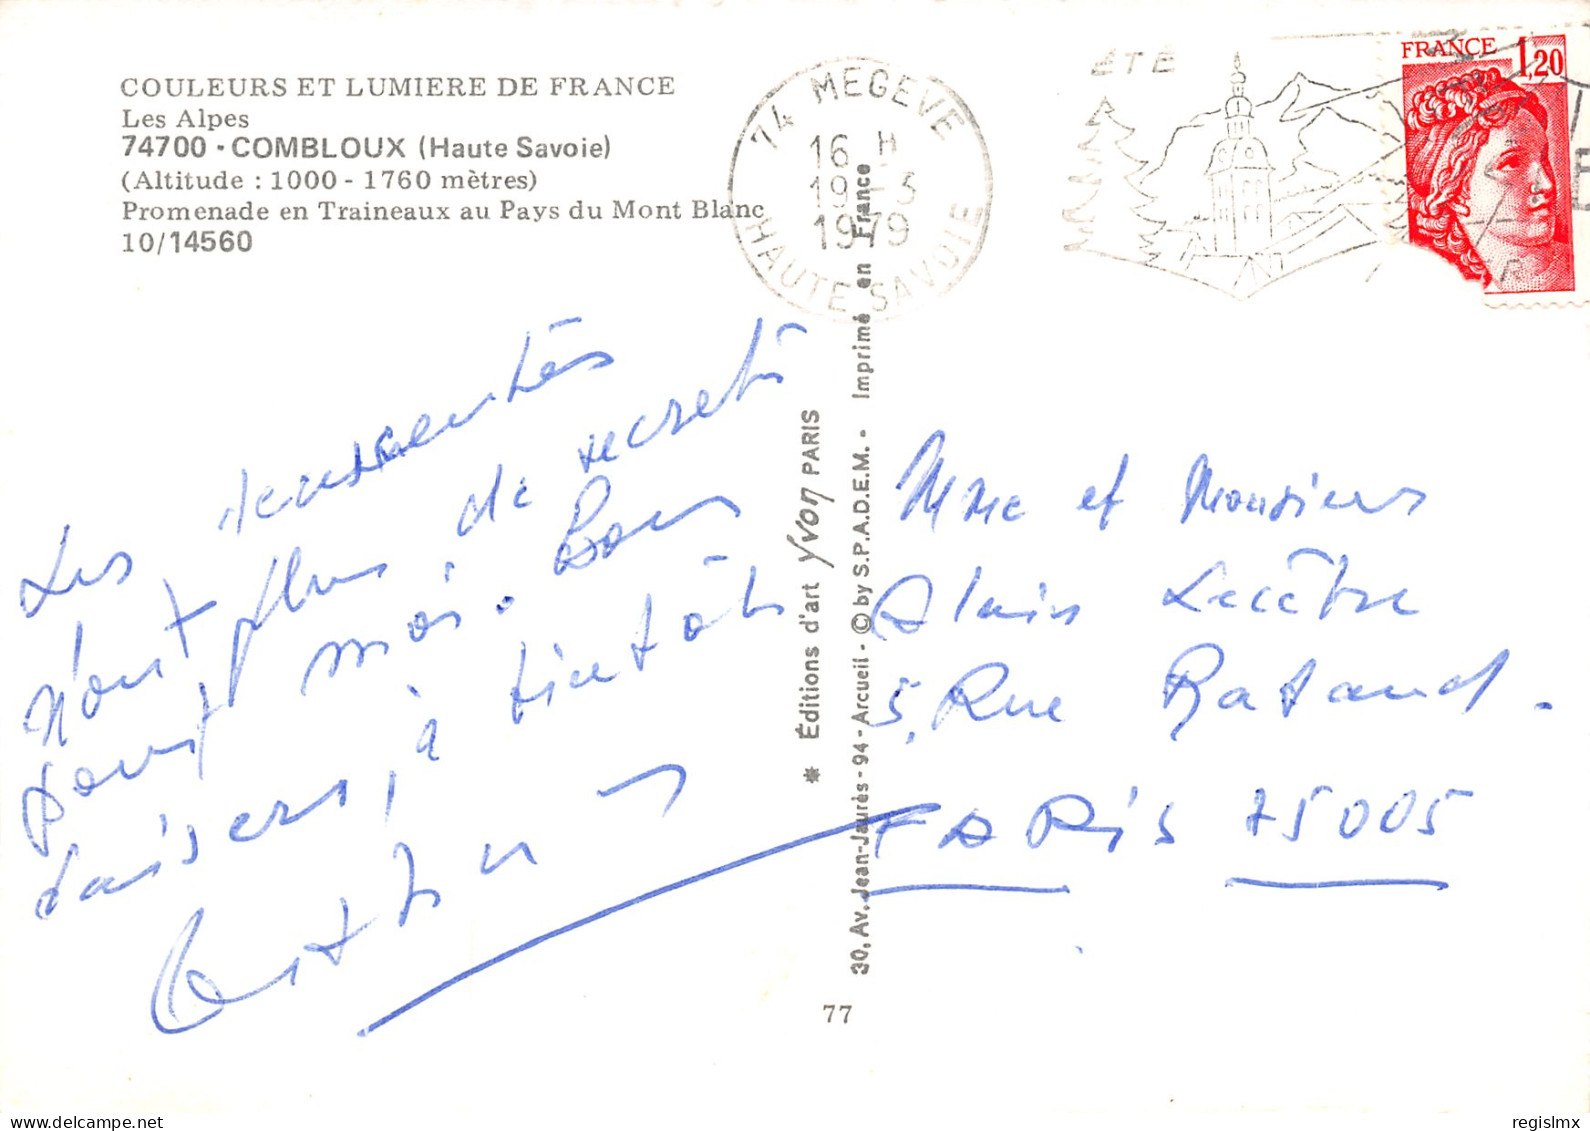 COULEURS ET LUMIERE DE FRANCE
Les Alpes
74700 - COMBLOUX (Haute Savoie)
(Altitude : 1000 - 1760 mètres)
Promenade en Traineaux au Pays du Mont Blanc
10/14560
74 MEGEVE
16 H
19 - 3
1979
HAUTE SAVOIE
ÉTÉ
FRANCE 1,20
Les
n'ont plus de secrets
pour moi. Bons
baisers, à bientôt
Mme et Monsieur
Alain Lecêtre
5, Rue Rataud.
PARIS 75005
* Éditions d'art Yvon PARIS
30, Av. Jean-Jaurès - 94 - Arcueil - © by S.P.A.D.E.M. - Imprimé en France
77
regislmx